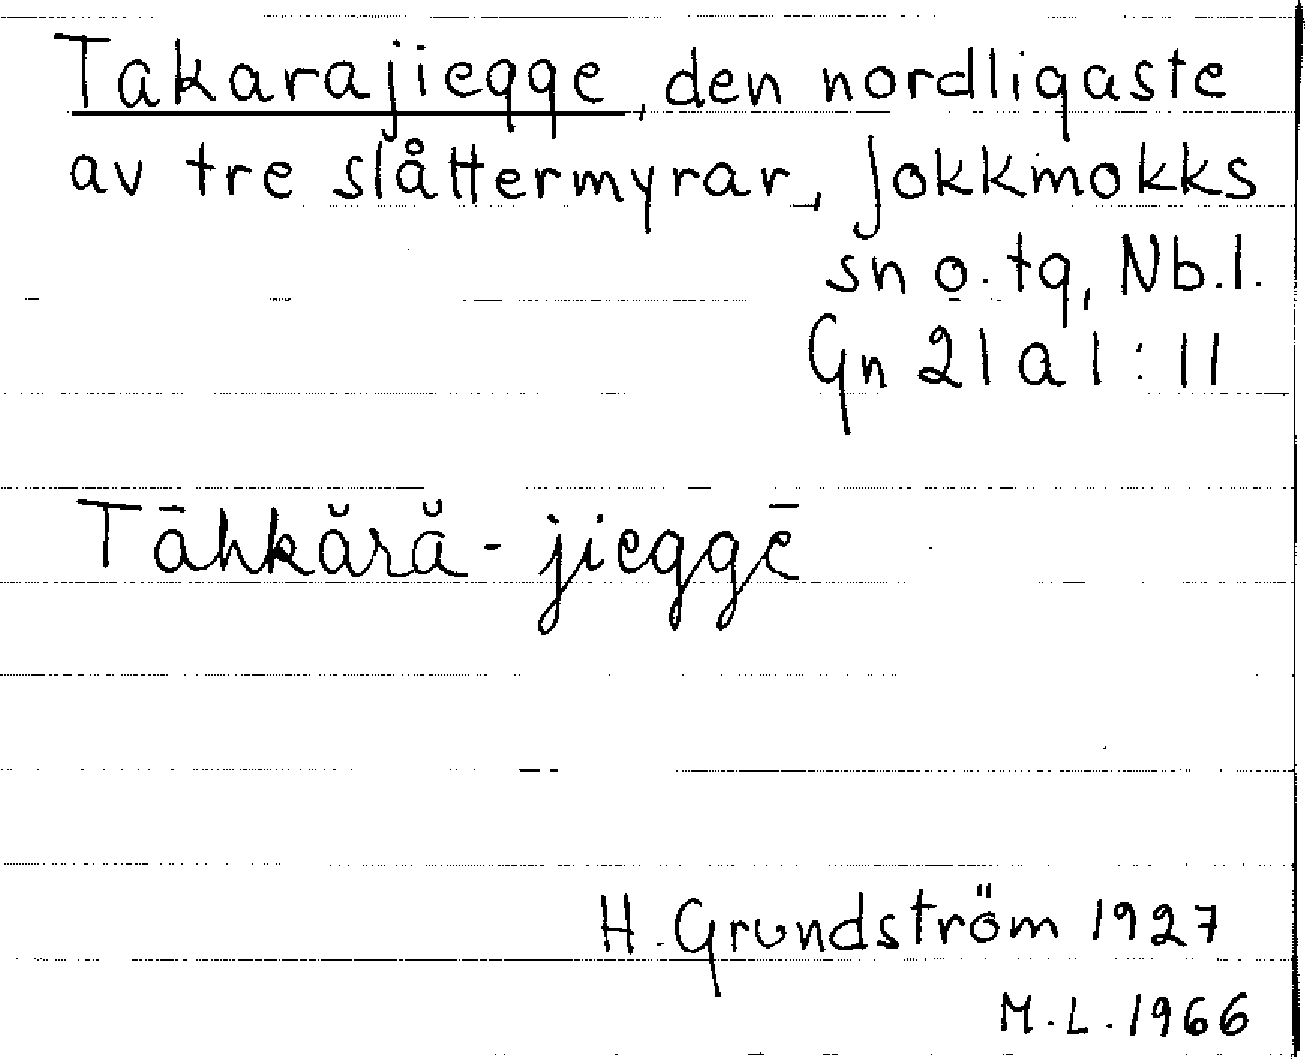 Takarajiegge, den nordligaste
av tre slåttermyrar, Jokkmokks
sn o. tg, Nb.l.
Gn 21 a 1 : 11
Tāhkără-jieggē
H. Grundström 1927
M.L. 1966